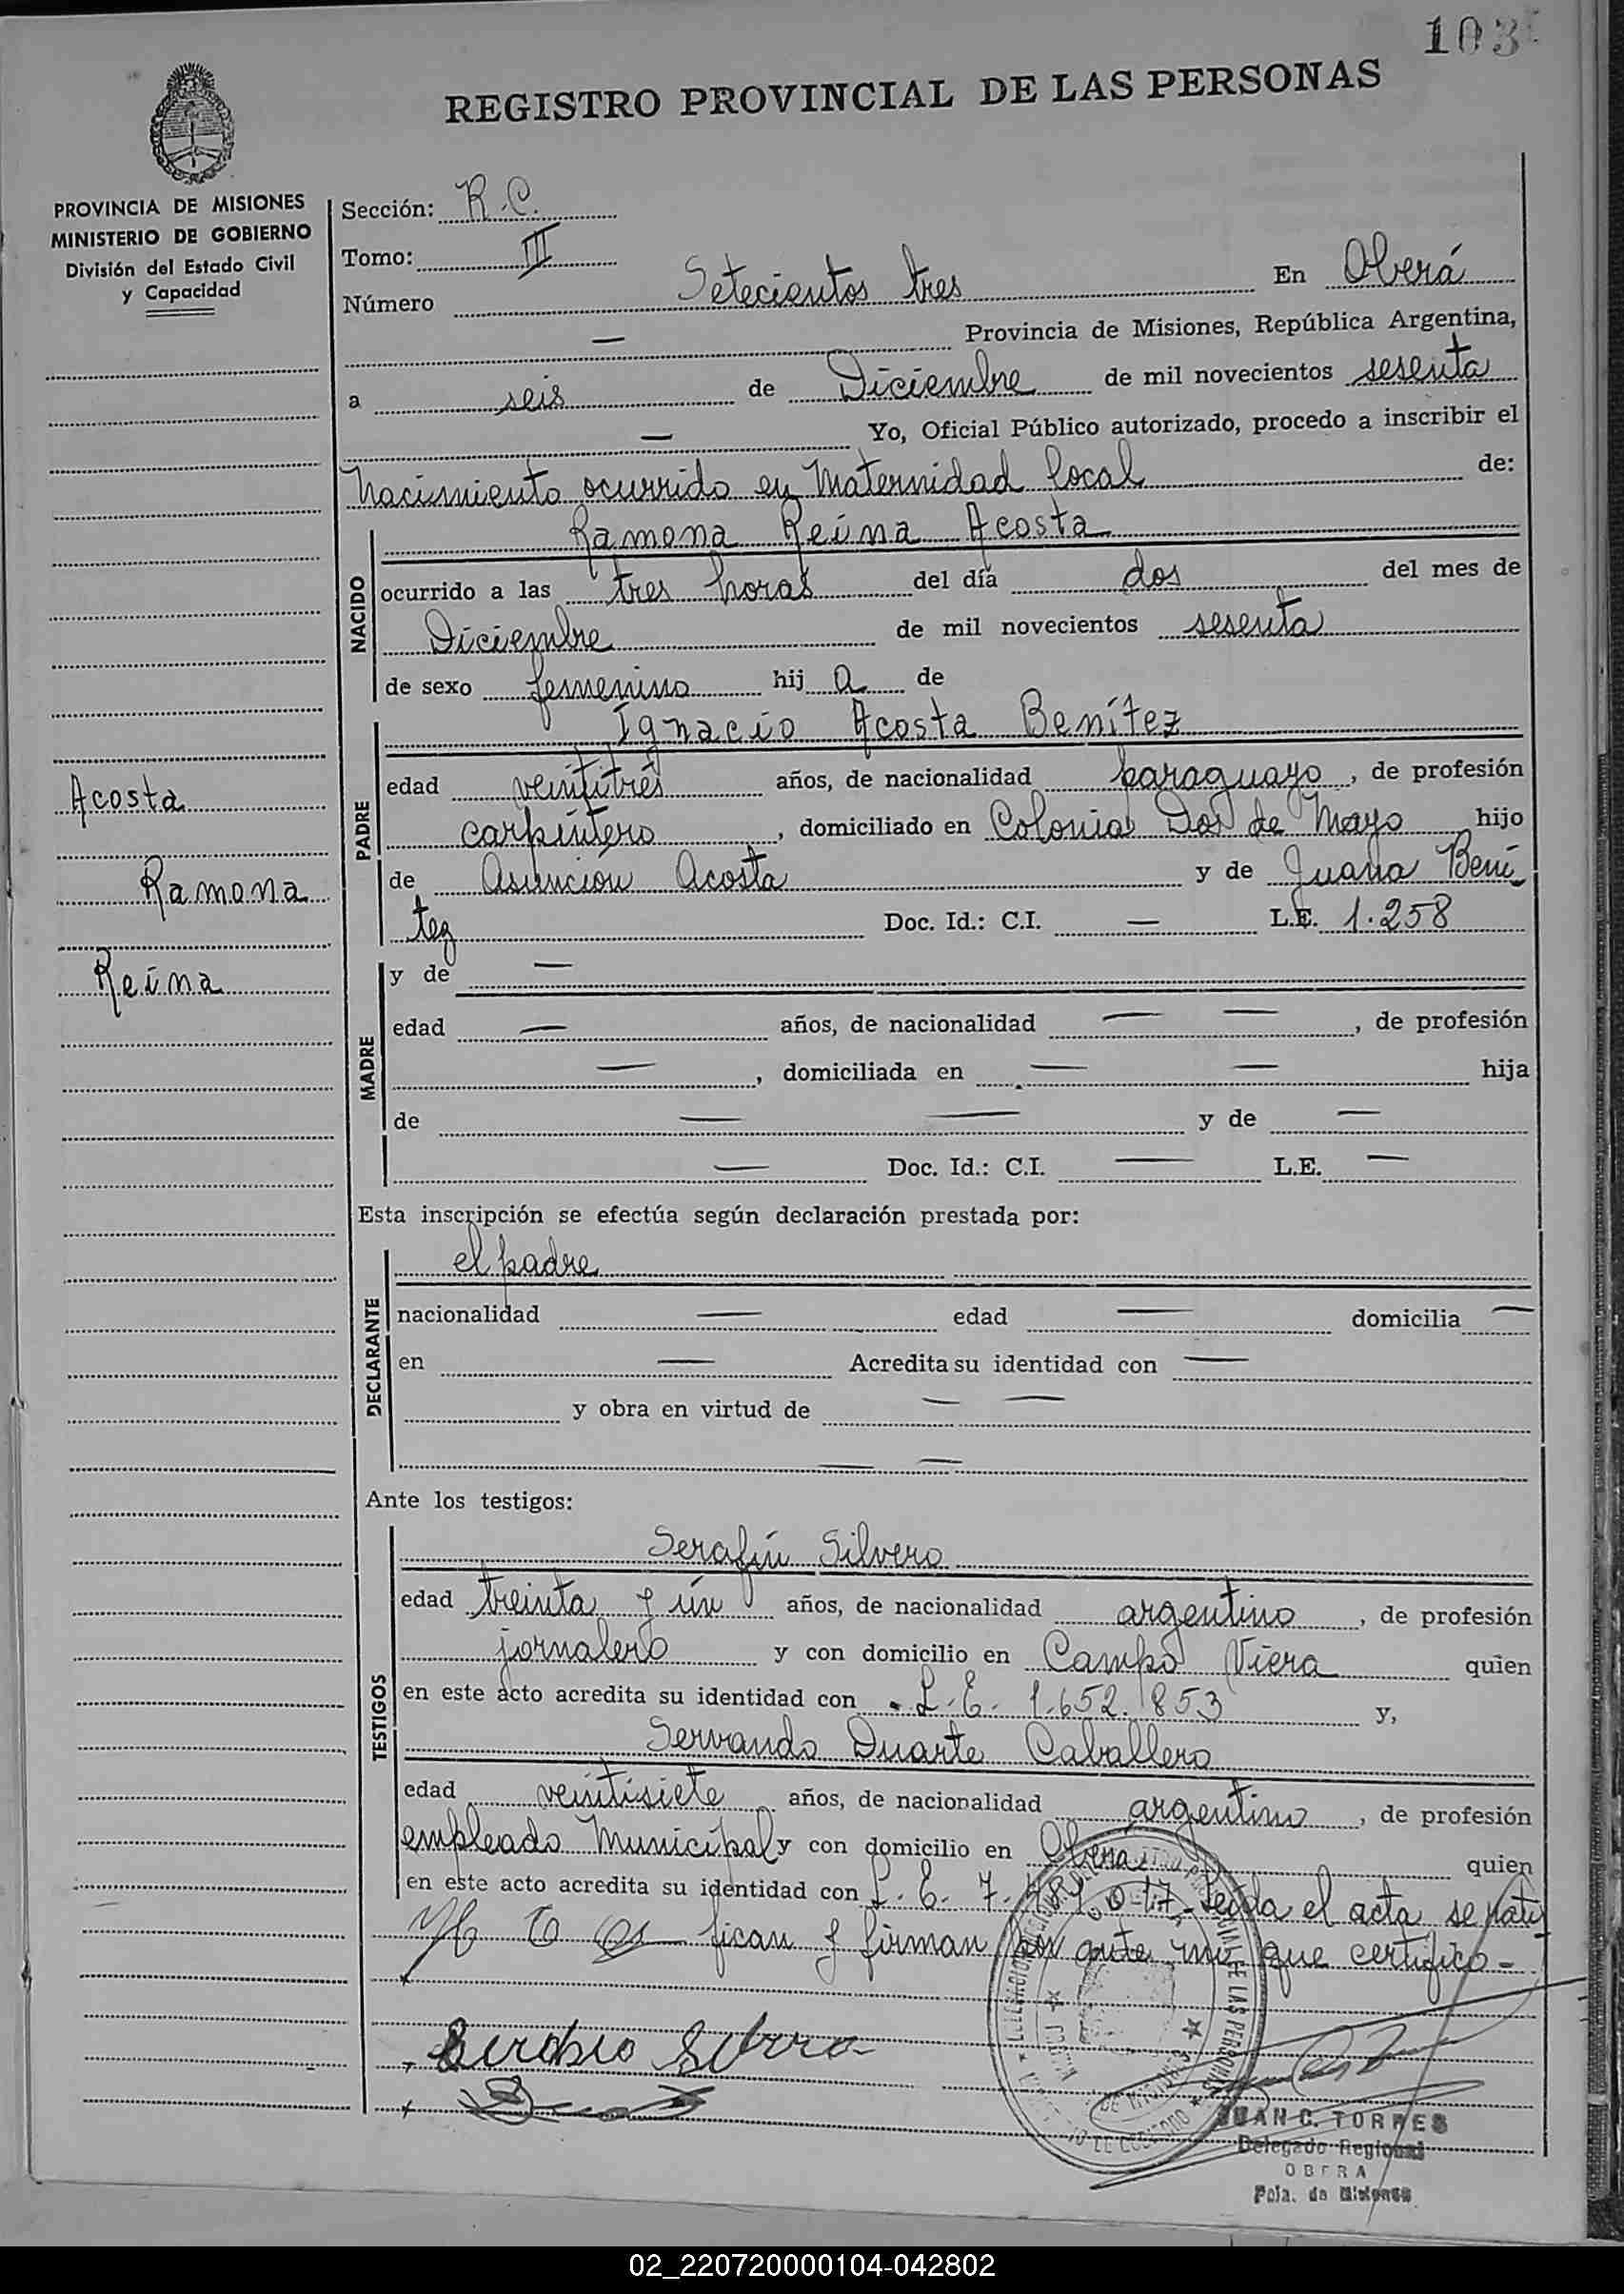 103
REGISTRO PROVINCIAL DE LAS PERSONAS
PROVINCIA DE MISIONES
MINISTERIO DE GOBIERNO
División del Estado Civil
y Capacidad
Sección: R. C.
Tomo: III
Número Setecientos tres En Oberá
— Provincia de Misiones, República Argentina,
a seis de Diciembre de mil novecientos sesenta
— Yo, Oficial Público autorizado, procedo a inscribir el
Nacimiento ocurrido en Maternidad local de:
NACIDO
Ramona Reina Acosta
ocurrido a las tres horas del día dos del mes de
Diciembre de mil novecientos sesenta
de sexo femenino hij a de
PADRE
Ignacio Acosta Benítez
edad veintitrés años, de nacionalidad paraguayo, de profesión
carpintero, domiciliado en Colonia Dos de Mayo hijo
de Asunción Acosta y de Juana Bení
tez Doc. Id.: C.I. — L.E. 1.258
Acosta
Ramona
Reina
MADRE
y de —
edad — años, de nacionalidad — —, de profesión
—, domiciliada en — — hija
de — — y de —
— Doc. Id.: C.I. — L.E. —
Esta inscripción se efectúa según declaración prestada por:
DECLARANTE
el padre
nacionalidad — edad — domicilia —
en — Acredita su identidad con —
y obra en virtud de — —
— —
Ante los testigos:
TESTIGOS
Serafín Silvero
edad treinta y ún años, de nacionalidad argentino, de profesión
jornalero y con domicilio en Campo Viera quien
en este acto acredita su identidad con L. E. 1.652.853 y,
Servando Duarte Caballero
edad veintisiete años, de nacionalidad argentino, de profesión
empleado Municipal y con domicilio en Oberá quien
en este acto acredita su identidad con L. E. 7. Leída el acta se rati
fican y firman por ante mí que certifico -
JUAN C. TORRES
Delegado Regional
OBERA
Pcia. de Misiones
02_220720000104-042802